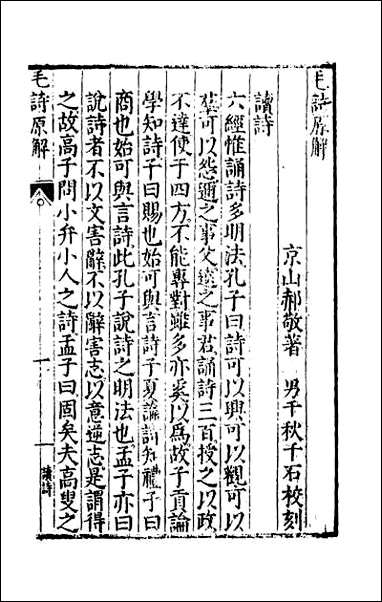 毛詩原解
京山郝敬著 男千秋千石校刻
讀詩
六經惟誦詩多明法孔子曰詩可以興可以觀可以
羣可以怨邇之事父遠之事君誦詩三百授之以政
不達使于四方不能專對雖多亦奚以爲故子貢論
學知詩子曰賜也始可與言詩子夏論詩知禮子曰
商也始可與言詩此孔子說詩之明法也孟子亦曰
說詩者不以文害辭不以辭害志以意逆志是謂得
之故高子問小弁小人之詩孟子曰固矣夫高叟之
毛詩原解
一
讀詩